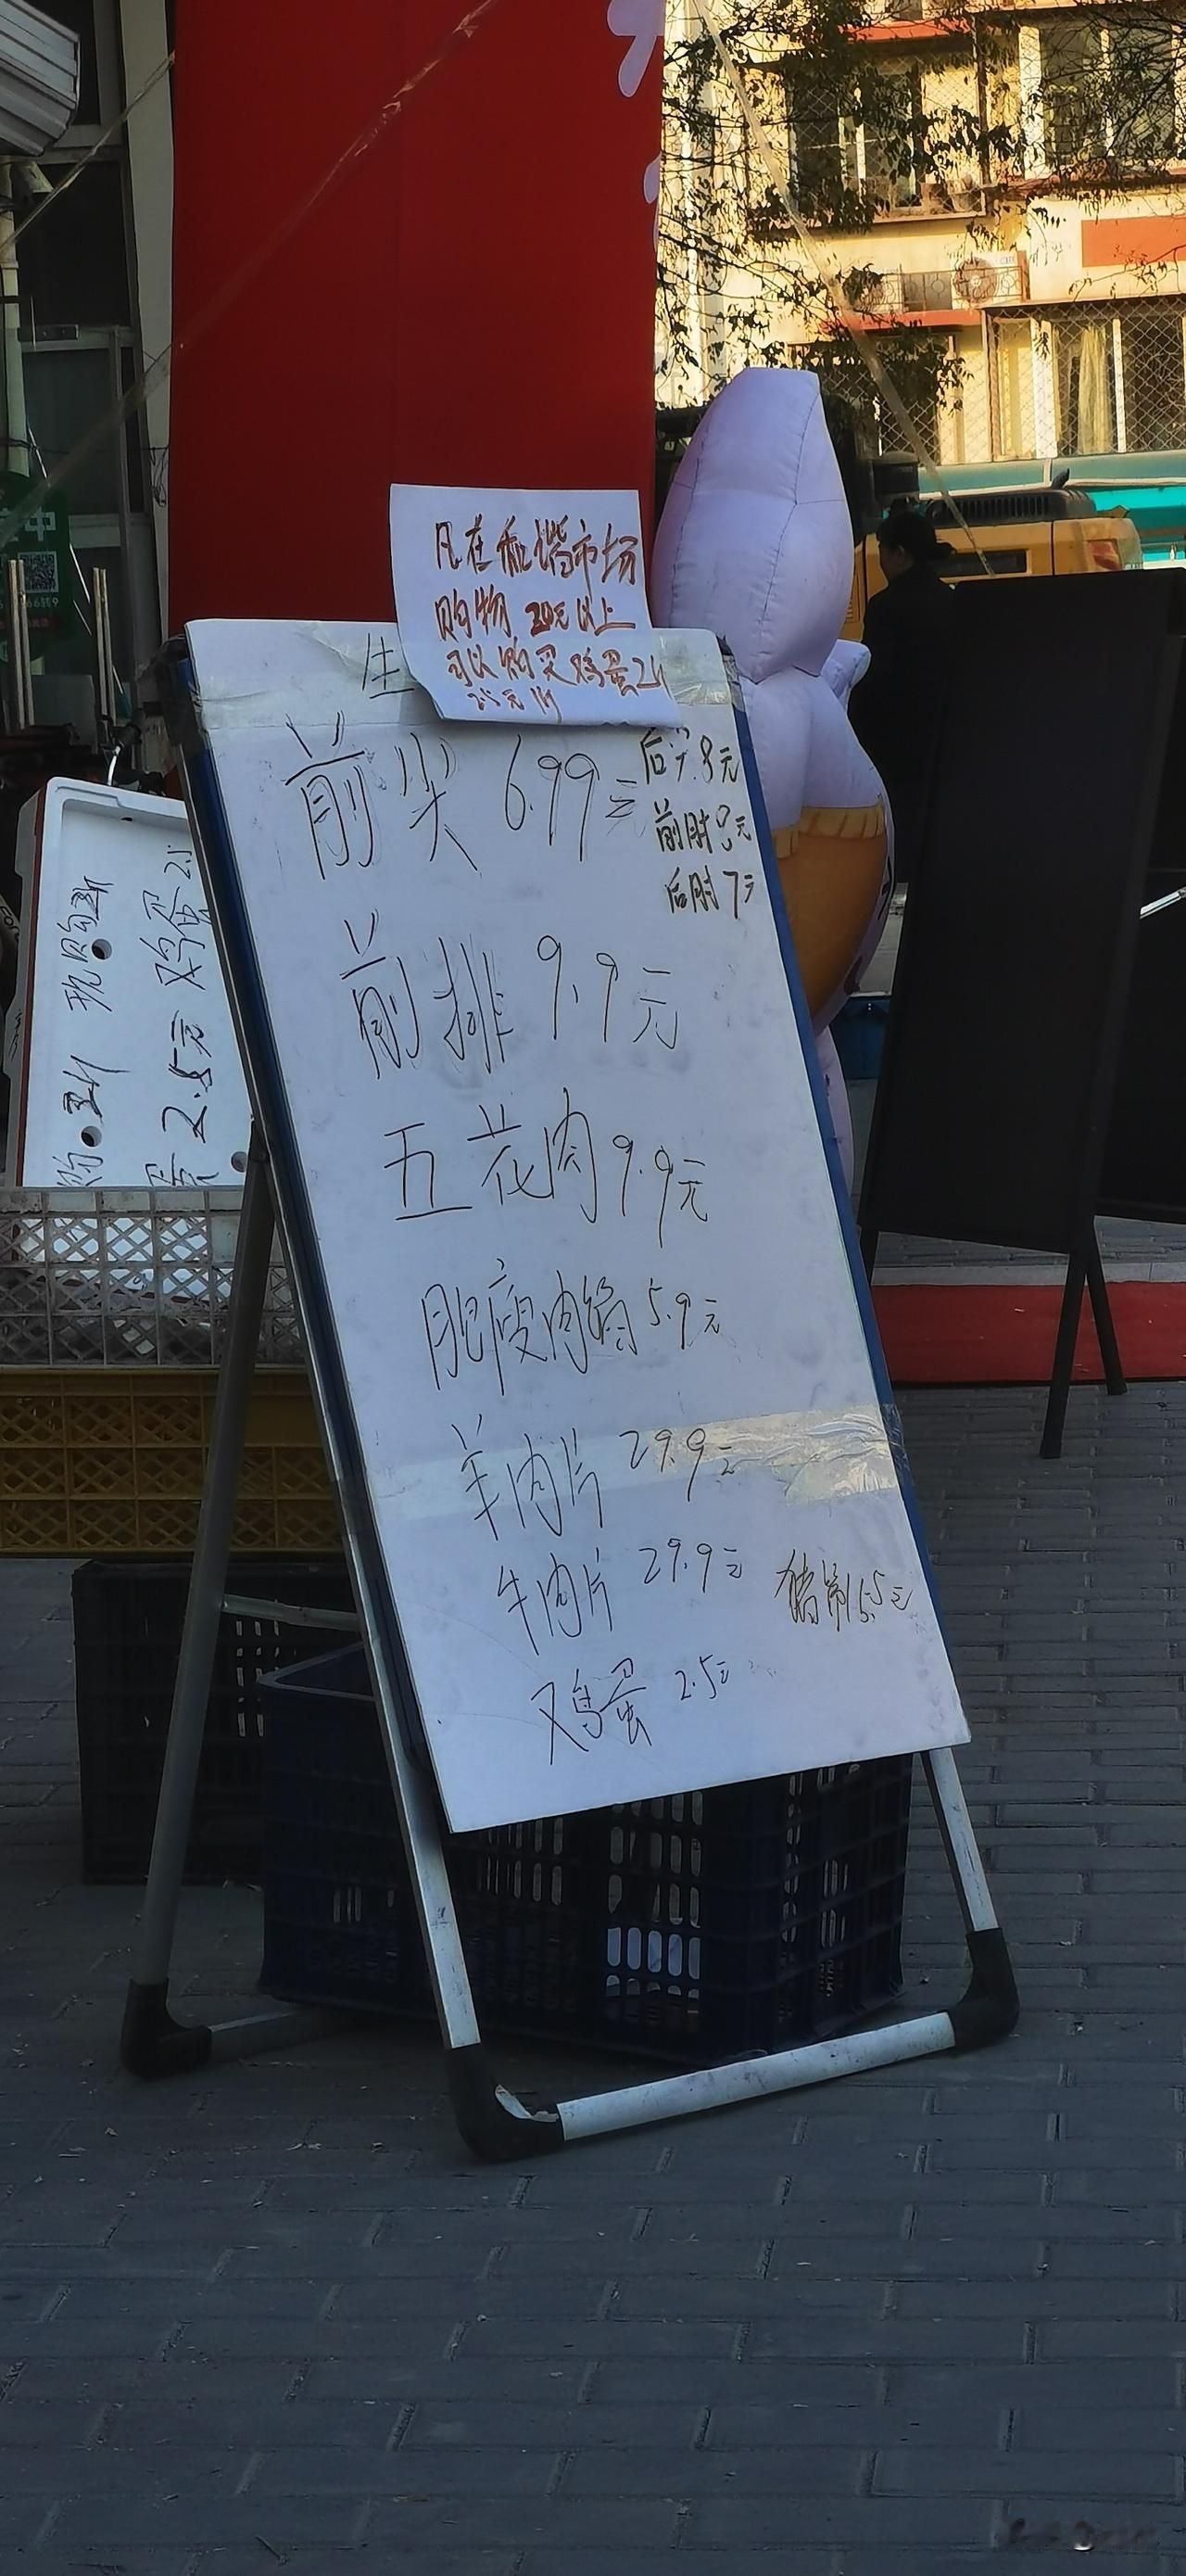 凡在和谐市场
购物 20元以上
可以购买鸡蛋2斤
2.5元1斤
生
前尖 6.99元
后尖.8元
前肘8元
后肘7元
前排 9.9元
五花肉 9.9元
肥瘦肉馅 5.9元
羊肉片 29.9元
牛肉片 29.9元
猪蹄15.5元
鸡蛋 2.5元
鸡蛋 2.5
2.5元